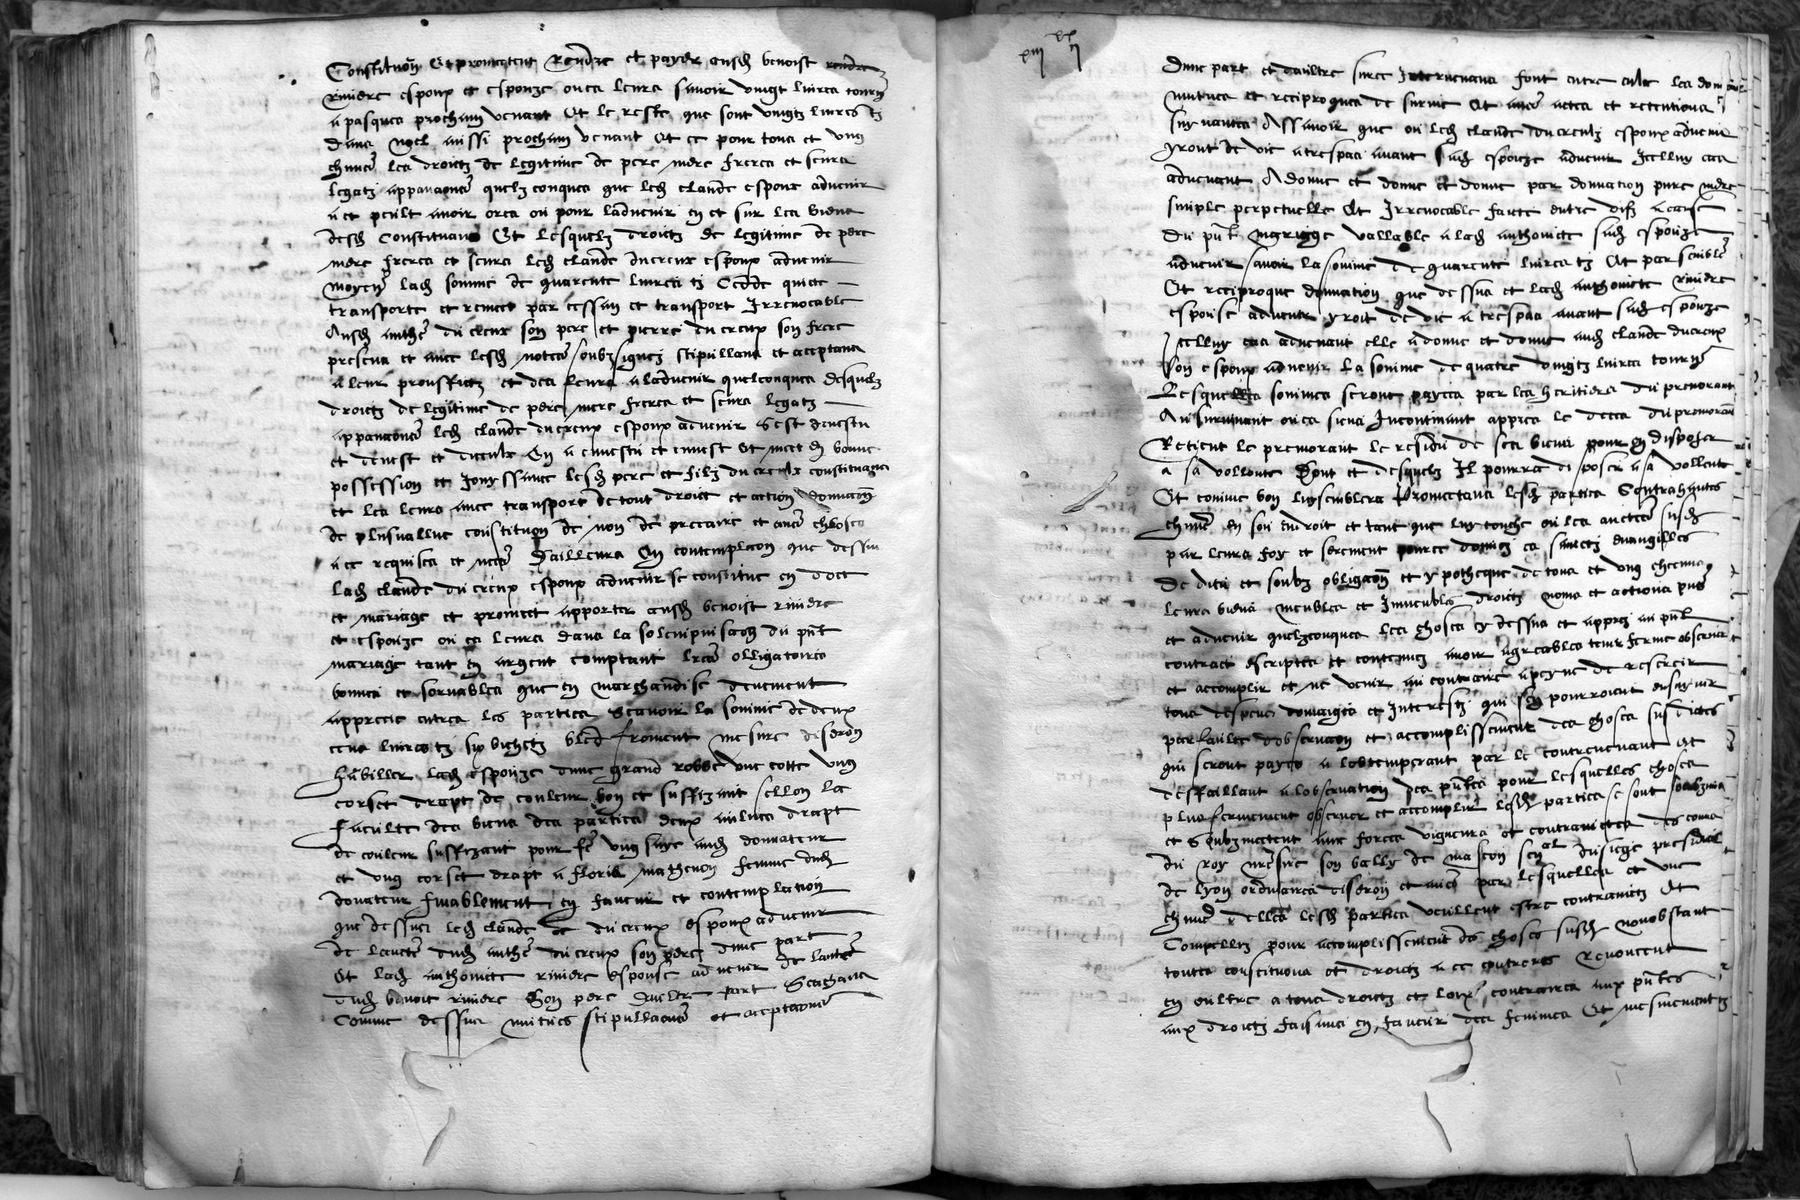 Constitution Et promectent Rendre et payer ausd benoist
riviere espoux et espouze ou es leurs savoir vingt livres tourn
a pasques prochain venant Et le reste que sont vingtz livres tz
dans noel aussi prochain venant Et ce pour tous et ung
chune les droictz de legitime de pere mere freres et seurs
legatz appanaiges quelzconques que led claude espoux advenir
a et peult avoir ores ou pour ladvenir en et sur les biens
desd Constituans Et lesquelz droictz de legitime de pere
mere freres et seurs led claude ducreux espoux advenir
moyen lad somme de quarente livres tz Cedde quicte
transporte et remect par cession et transport Irrevocable
Ausd anthe du creux son pere et pierre du creux son frere
presens et avec lesd notere soubzsignez stipullans et acceptans
a leur prouffictz et des leurs a ladvenir quelconques desquelz
droictz de legitime de pere mere freres et seurs legatz
appanaiges led claude ducreux espoux advenir sest devestu
et devest et diceulx En a envestu et envest Et mect en bonne
possession et Jouyssance lesd pere et filz du creulx constituans
et les leurs avec transport de tout droict et action donnation
de plusvallue constitution de non de precaire et aues choses
a ce requises et necess Dailleurs En contemplaon que dessus
lad claude du creux espoux advenir se constitue en doct
et mariage et promect apporter ausd benoist riviere
et espouze ou es leurs dans la solempnisaon du pnt
mariage tant en argent comptant lres obligatoires
bonnes et sorvables que en marchandise deuement
appreciee entres les parties Scavoir la somme de deux
cens livres tz six bichetz bled froment mesure diseron
habiller lad espouze dune grand robbe une cotte ung
corset drapt de couleur bon et suffizant sellon la
faculte des biens des parties deux aulnes drapt
de couleur suffizant pour fe ung saye aud donnateur
et ung corset drapt a floris mathevon femme dud
donateur finablement en faveur et contemplation
que dessus led claude du creux espoux advenir
de laucte dud anthe du creux son pere dune part
Et lad anthoniete riviere espouse advenir de laucte
dud benoit riviere son pere daultre part Seachans
Comme dessus mutues stipullaons et acceptaons
xiii
dune part et daultre sures Intervenans font entre eulx les donaons
mutues et reciproques de survie Et aues pactes et retentions
suyvantes Assavoir que ou led claude ducreulx espoux advenir
yroit de vie a trespas avant sad espouze advenir Icelluy cas
advenant A donne et donne par donnation pure mere
simple perpetuelle Et Irrevocable faicte entre vifz a cause
du pnt mariage vallable a lad anthoniete sad espouze
advenir savoir la somme de quarente livres tz Et par semble
Et reciproque donnation que dessus et lad anthoniete riviere
espouse advenir yroit de vie a trespas avant sond espouze
Icelluy cas advenant elle a donne et donne aud claude ducreux
son espoux advenir la somme de quatre vingtz livres tourn
Lesquelles sommes seront payees par les heritiers du premorant
Au survivant ou es siens Incontinant appres le deces du premorant
Retient le premorant le residu de ses biens pour en disposer
a sa vollonte Dont et desquelz Il pourra disposer a sa vollente
Et comme bon luy semblera Promectans lesd parties Contrahantes
chune en son endroit et tant que luy touche ou les auctes susd
par leurs foy et serement pource donnez es sainctz evangilles
de dieu et soubz obligaon et ypotheque de tous et ung chacuns
leurs biens meubles et Immeubles droictz noms et actions pns
et advenir quelzconques lees choses cy dessus et appres au pnt
contract escriptes et contenues avoir agreables tenir ferme observer
et accomplir et ne venir au contraire a peyne de reffreir
tous despens domaiges et Interestz qui sen pourroient ensuyvir
par faulte dobservaon et accomplissement des choses susdictes
qui seront payes a lobtemperant par le contrevenant Et
deffaillant a lobservation des pntes pour lesquelles choses
plus fermement observer et accomplir lesd parties se sont soubzmis
et Soubzmectent aux forces vigueurs et contrainctes des cours
du roy nre sire son bally de mascon senal du siege presidial
de lyon ordinaires diseron et aues par lesquelles et une
chune delles lesd parties veullent estre contrainctz Et
Compellez pour accomplissement des choses susd Nonobstant
toutes constitutions et droictz a ce contreres Renoncent
en oultre a tous droictz et loix contreres aux pntes
aux droictz faisans en faveur des femmes Et mesmement